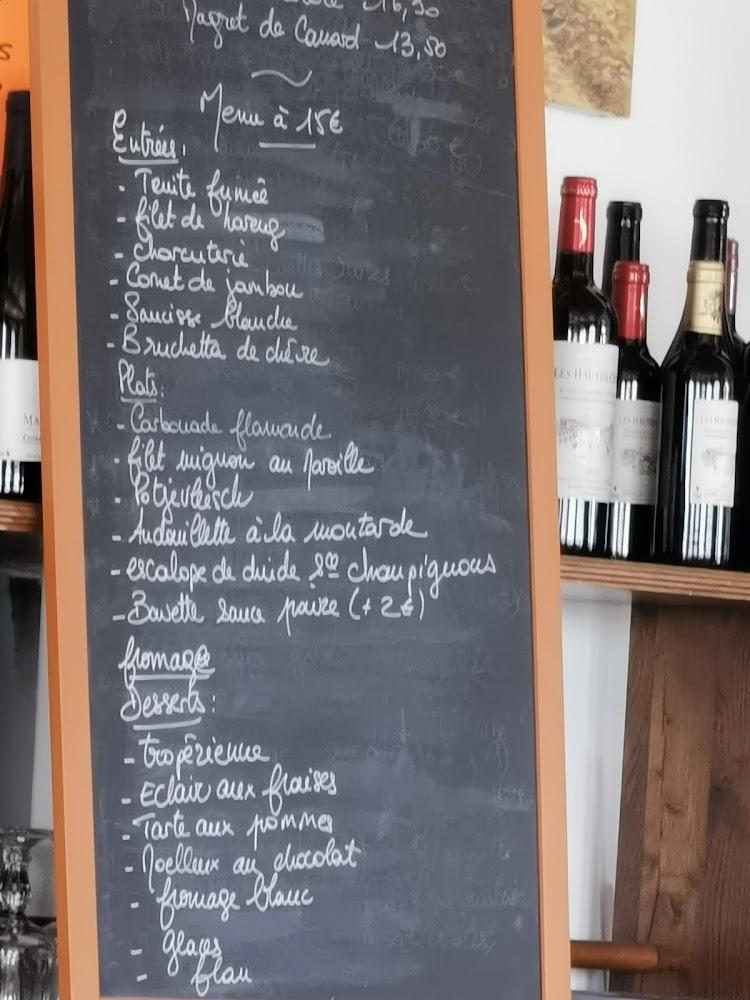 16,50
Magret de Canard 13,50
Menu à 15€
Entrées :
- Truite fumée
- filet de hareng
- Charcuterie
- Cornet de jambon
- Saucisse blanche
- Bruchetta de chèvre
Plats :
- Carbonade flamande
- filet mignon au Maroille
- Potjevleesch
- Andouillette à la moutarde
- escalope de dinde sce champignons
- Bavette sauce poivre (+ 2€)
fromage
Desserts :
- tropézienne
- Eclair aux fraises
- Tarte aux pommes
- Moelleux au chocolat
- fromage blanc
- glaces
- flan
LES HAUTES
LES HAUTES
LES HAU
MA
S